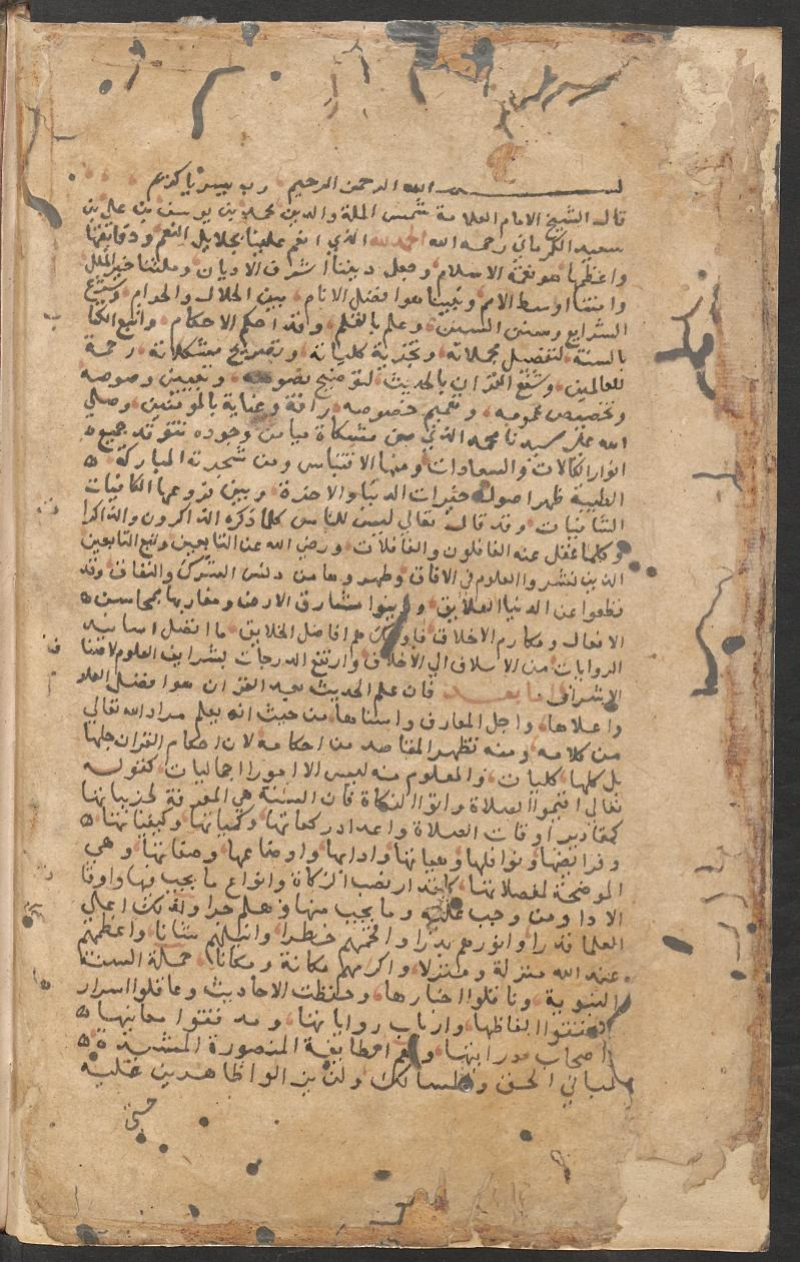 بسم الله الرحمن الرحيم رب يسر يا كريم
قال الشيخ الامام العلامة شمس الملة والدين محمد بن يوسف بن علي بن
سعيد الكرماني رحمه الله الحمد لله الذي انعم علينا بجلايل النعم ودقايقها
واعظمها هو نعمة الاسلام وجعل ديننا اشرف الاديان وملتنا خير الملل
وامتنا اوسط الامم ونبينا هو افضل الانام بين الحلال والحرام وشرع
الشرايع وسنن السنن وعلم بالقلم وقد احكم الاحكام واتبع الكتا
بالسنة لتفصيل مجملاته وتجزية كلياته وتصريح مشكلاته رحمة
للعالمين وشفع القران بالحديث لتوضيح نصو وتعيين وصوصه
وتخصيص عمومه وتعميم خصوصه رافة وعناية بالمومنين وصلى
الله على سيدنا محمد الذي من مشكاة ميامن وجوده تتوقد جميع
انوار الكمالات والسعادات ومنها الاقتباس ومن شجرته المباركة
الطيبة ظهر اصول خيرات الدنيا والاخرة وبين فروعها الكافيات
الشافيات وقد قال تعالى ليبين للناس كلما ذكره الذاكرون والذاكرا
وكلما غفل عنه الغافلون والغافلات ورضي الله عن التابعين وتبع التابعين
الذين نشروا العلوم في الافاق وطهروها من دنس الشرك والنفاق وقد
قطعوا عن الدنيا العلايق وزينوا مشارق الارض ومغاربها بمحاسن
الافعال ومكارم الاخلاق فاولئك هم افاضل الخلايق ما اتصل اسانيد
الروايات من الاسلاف الى الاخلاف وارتفع الدرجات بشرايف العلوم لاقتنا
الاشراف اما بعد فان علم الحديث بعد القران هو افضل العلو
واعلاها واجل المعارف واسناها من حيث انه يعلم مراد الله تعالى
من كلامه ومنه تظهر المقاصد من احكامه لان احكام القران جلها
بل كلها كليات والمعلوم منه ليس الا امورا اجماليات كقوله
تعالى اقيموا الصلاة واتوا الزكاة فان السنة هي المعرفة لجزيياتها
كمقادير اوقات الصلاة واعداد ركعاتها وكمياتها وكيفياتها
وفرايضها ونوافلها وهياتها وادابها واوضاعها وصفاتها وهي
الموضحة لمفصلاتها كمقدار نصب الزكاة وانواع ما يجب فيها واوقا
الادا ومن وجب عليه وما يجب منها وهلم جرا ولذلك اعلى
العلما قدرا وانورهم بدرا وافخمهم خطرا وانبلهم شانا واعظمهم
عند الله منزلة ومنزلا واكرمهم مكانة ومكانا حملة السنة
النبوية وناقلوا اخبارها وحفظة الاحاديث وعاقلوا اسرار
ومتقنوا الفاظها وارباب رواياتها ومدققوا معانيها
واصحاب درايتها وهم الطايفة المنصورة المشيد
لمباني الحق والمسالك ولن يزالوا ظاهرين عليه
حتى